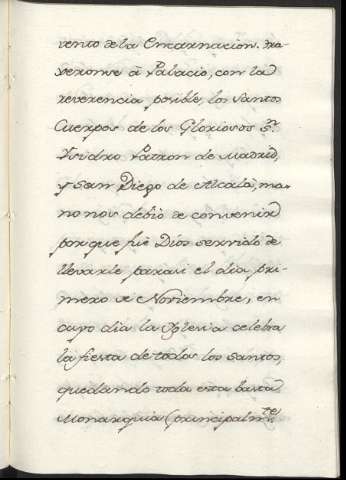 vento de la Encarnacion. tra-
xeronse à Palacio, con la
reverencia posible, los santos
Cuerpos de los Gloriosos Sn.
Ysidro Patron de Madrid,
y san Diego de Alcalà, mas
no nos debio de convenir
porque fuè Dios servido de
llevarle parasi el dia pri-
mero de Noviembre, en
cuyo dia la Yglesia celebra
la fiesta de todos los santos,
quedando toda esta basta
Monarquia (principalmte.